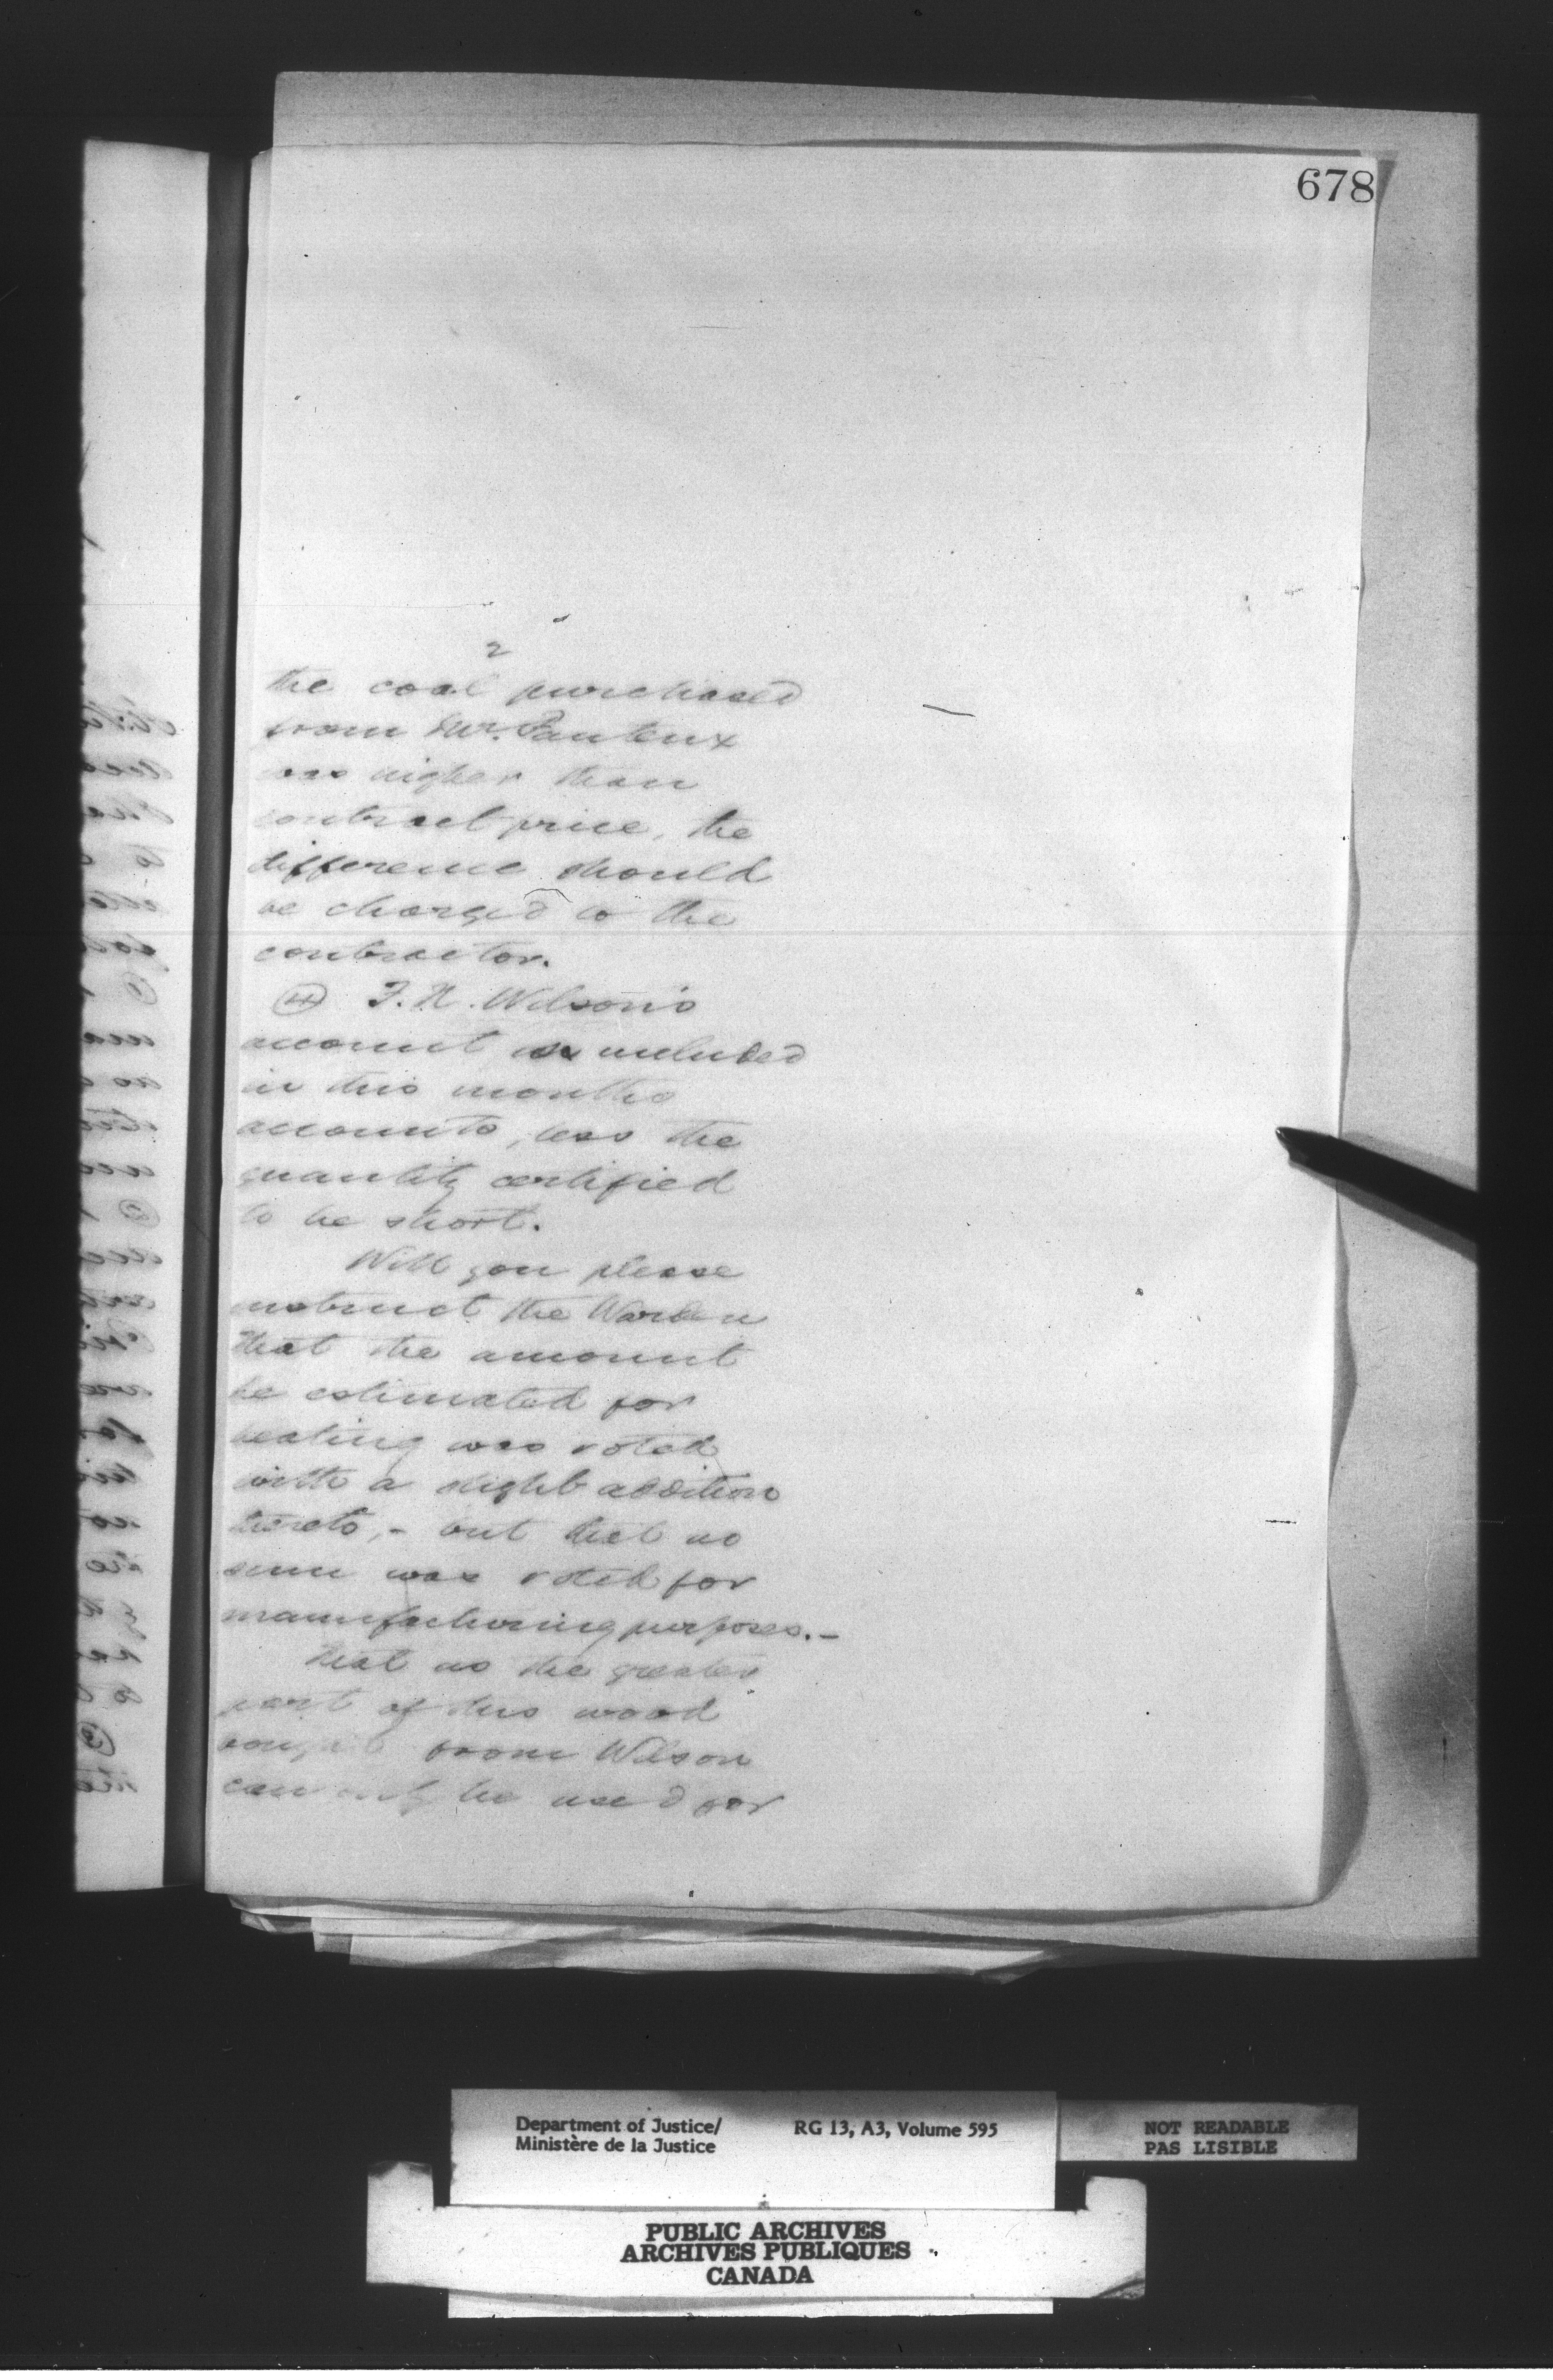 678
2
the coal purchased
from Mr. Fauteux
was higher than
contract price, the
difference should
be charged to the
contractor.
④ F. N. Wilson's
account is included
in this months
accounts, less the
quantity certified
to be short.
Will you please
instruct the Warden
that the amount
he estimated for
heating was voted
with a slight addition
thereto, - but that no
sum was voted for
manufacturing purposes. -
that as the greater
part of this wood
bought from Wilson
can only be used for
Department of Justice/
Ministère de la Justice
RG 13, A3, Volume 595
NOT READABLE
PAS LISIBLE
PUBLIC ARCHIVES
ARCHIVES PUBLIQUES
CANADA